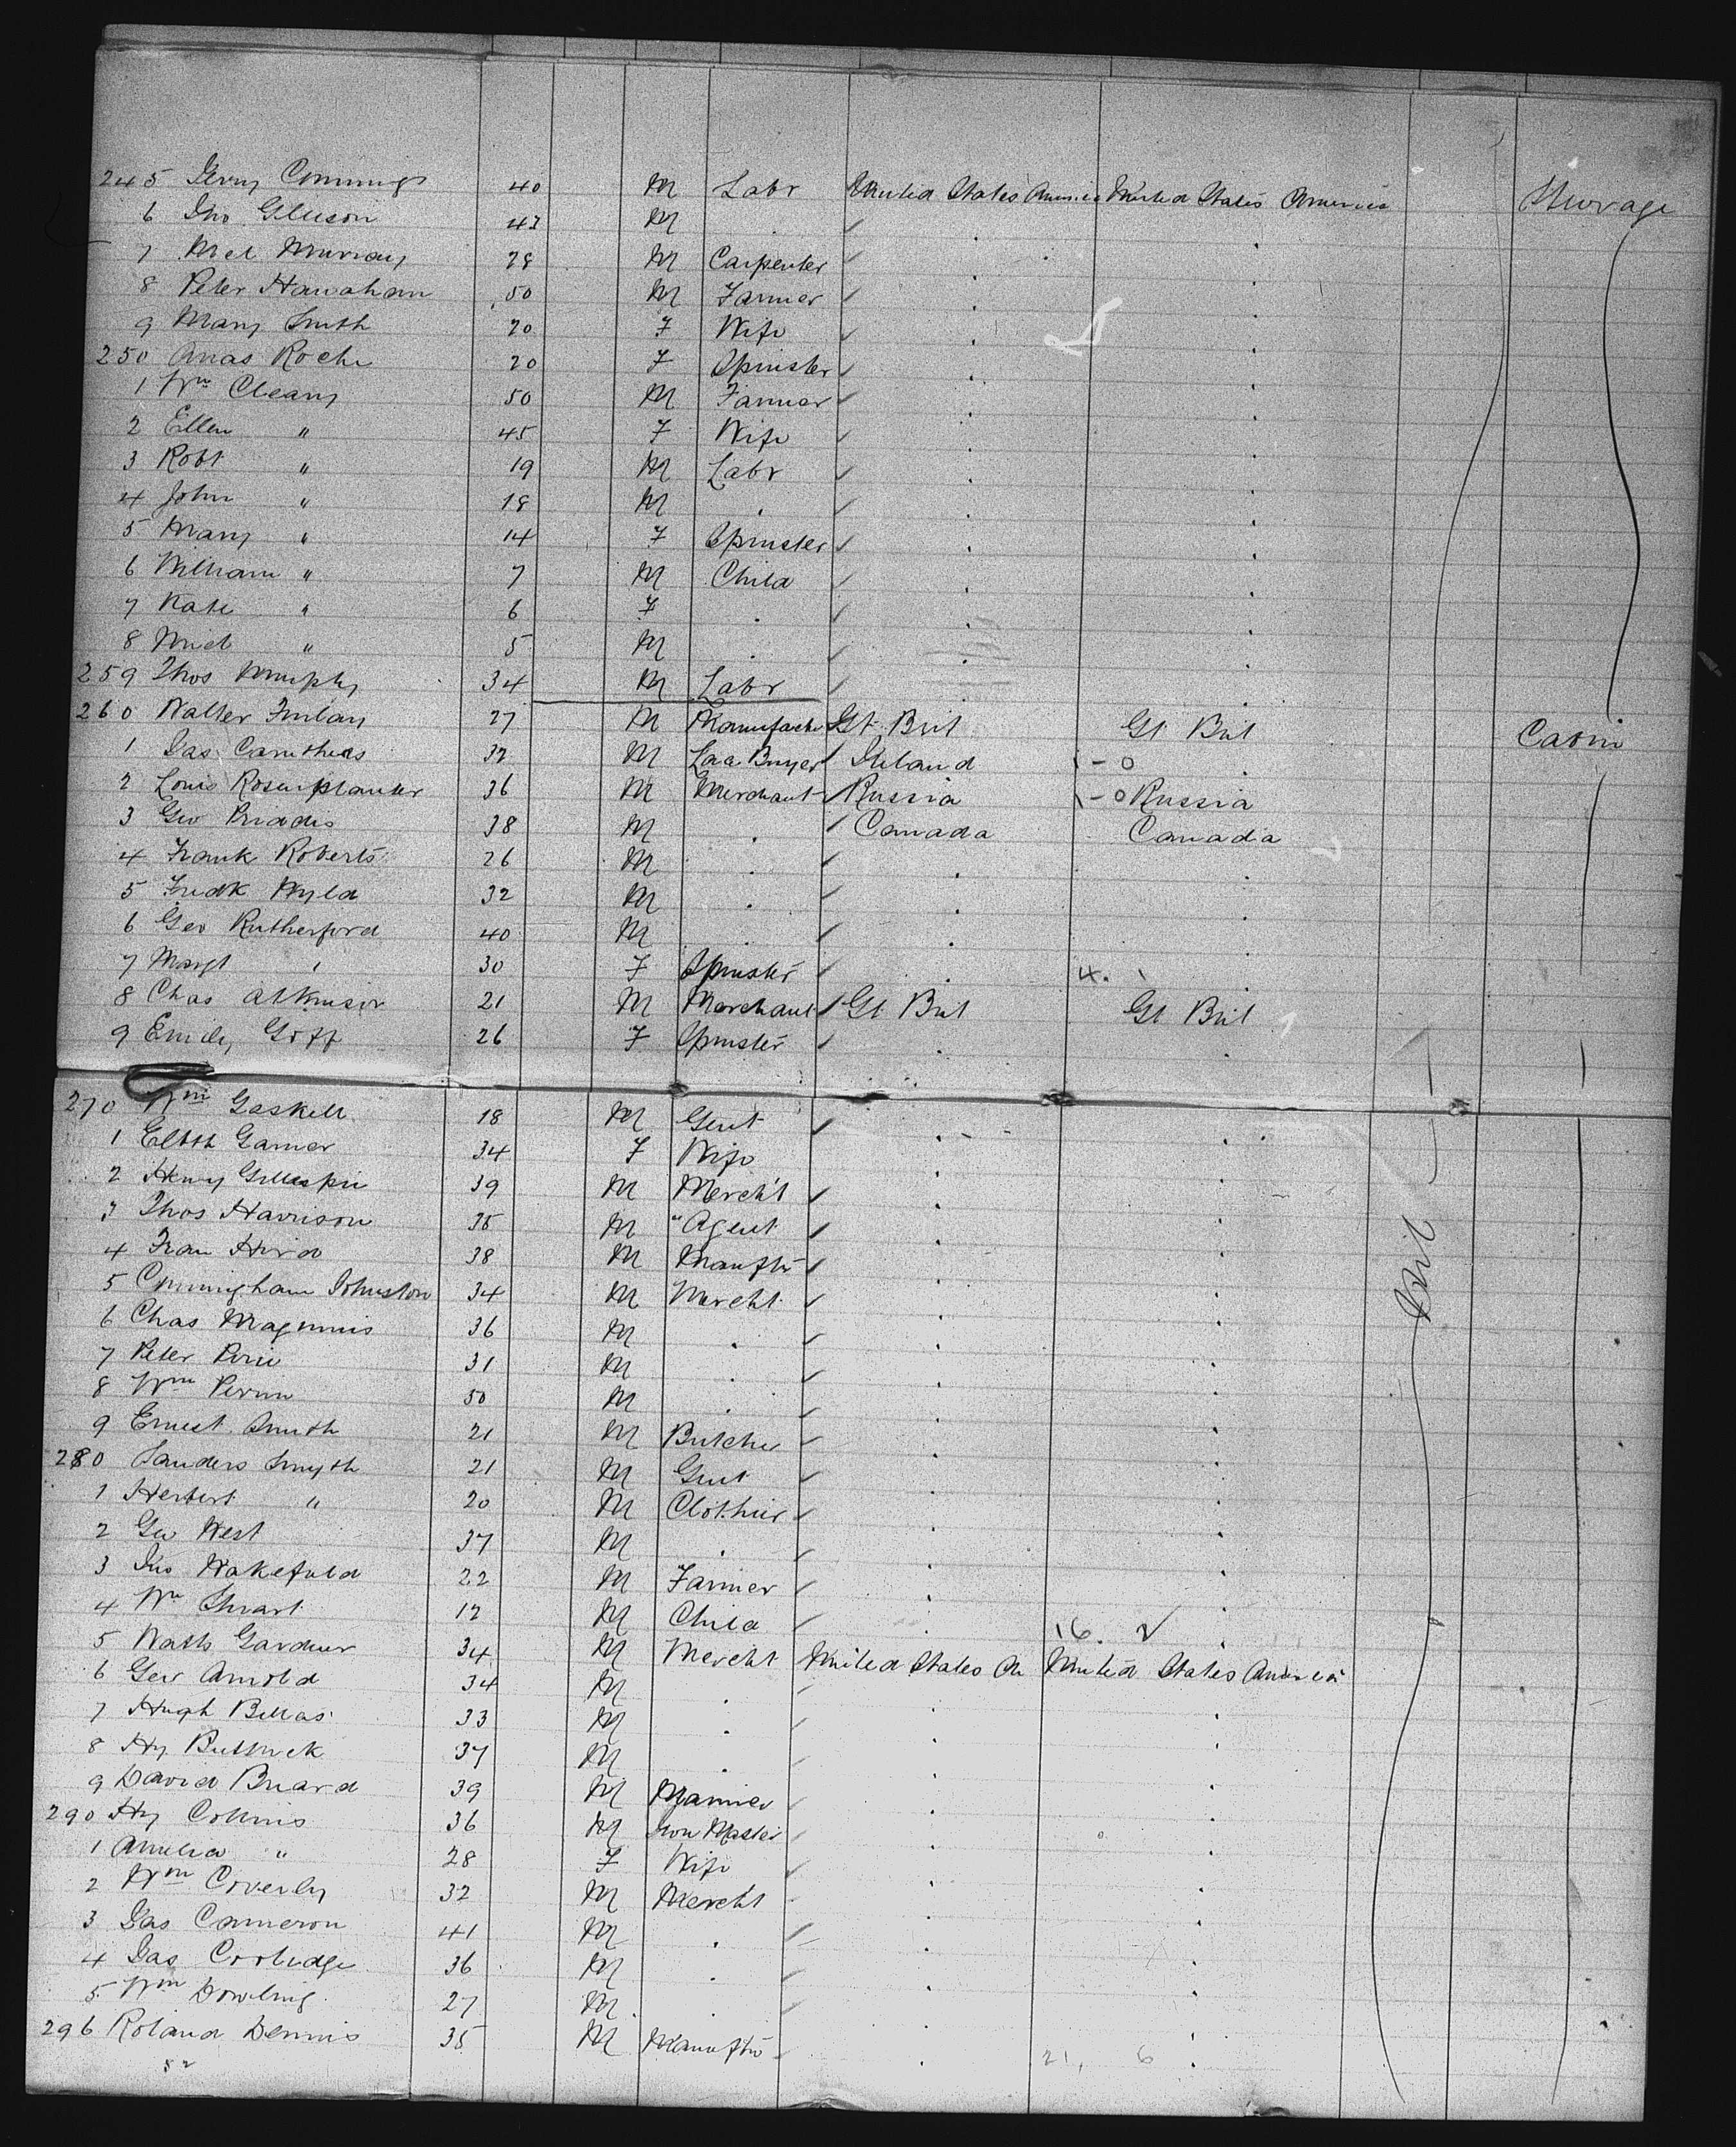 245 Jerry Cummings 40 M Labr United States America United States America Steerage
6 Jno Gleeson 43 M
7 Mel Murray 28 M Carpenter
8 Peter Hanrahan 50 M Farmer
9 Mary Smith 20 F Wife
250 Anas Roche 20 F Spinster
1 Wm Cleary 50 M Farmer
2 Ellen " 45 F Wife
3 Robt " 19 M Labr
4 John " 18 M
5 Mary " 14 F Spinster
6 William " 7 M Child
7 Kate " 6 F
8 Mich " 5 M
259 Thos Murphy 34 M Labr
260 Walter Finlay 27 M Gt Brit Gt Brit Cabin
1 Jas Caruthers 32 M Lace Buyer Ireland
2 Louis 36 M Merchant Russia Russia
3 Geo 38 M Canada Canada
4 Frank Roberts 26 M
5 Fredk Wyld 32 M
6 Geo Rutherford 40 M
7 Margt " 30 F Spinster 4.
8 Chas Atkinson 21 M Merchant Gt Brit Gt Brit
9 Emily Goff 26 F Spinster
270 Wm Gaskell 18 M Gent
1 Elbth Garner 34 F Wife
2 Henry Gillespie 39 M Mercht
3 Thos Harrison 35 M " Agent
4 Fran Hird 38 M Manuftr
5 Cunningham Johnston 34 M Mercht
6 Chas Maginnis 36 M
7 Peter Pirie 31 M
8 Wm Perrin 50 M
9 Ernest Smith 21 M Butcher
280 Sanders Smyth 21 M Gent
1 Herbert " 20 M Clothier
2 Geo West 37 M
3 Jno Wakefield 22 M Farmer
4 Wm 12 M Child 16.
5 Gardner 34 M Mercht United States Am United States America
6 Geo Arnold 34 M
7 Hugh Bellas 33 M
8 Hy 37 M
9 David 39 M
290 Hy Collins 36 M Iron Master
1 Amelia " 28 F Wife
2 Wm Coverly 32 M Mercht
3 Jas Cameron 41 M
4 Jas Coolidge 36 M
5 Wm Dowling 27 M
296 Roland Dennis 35 M Manuftr
52 21, 6